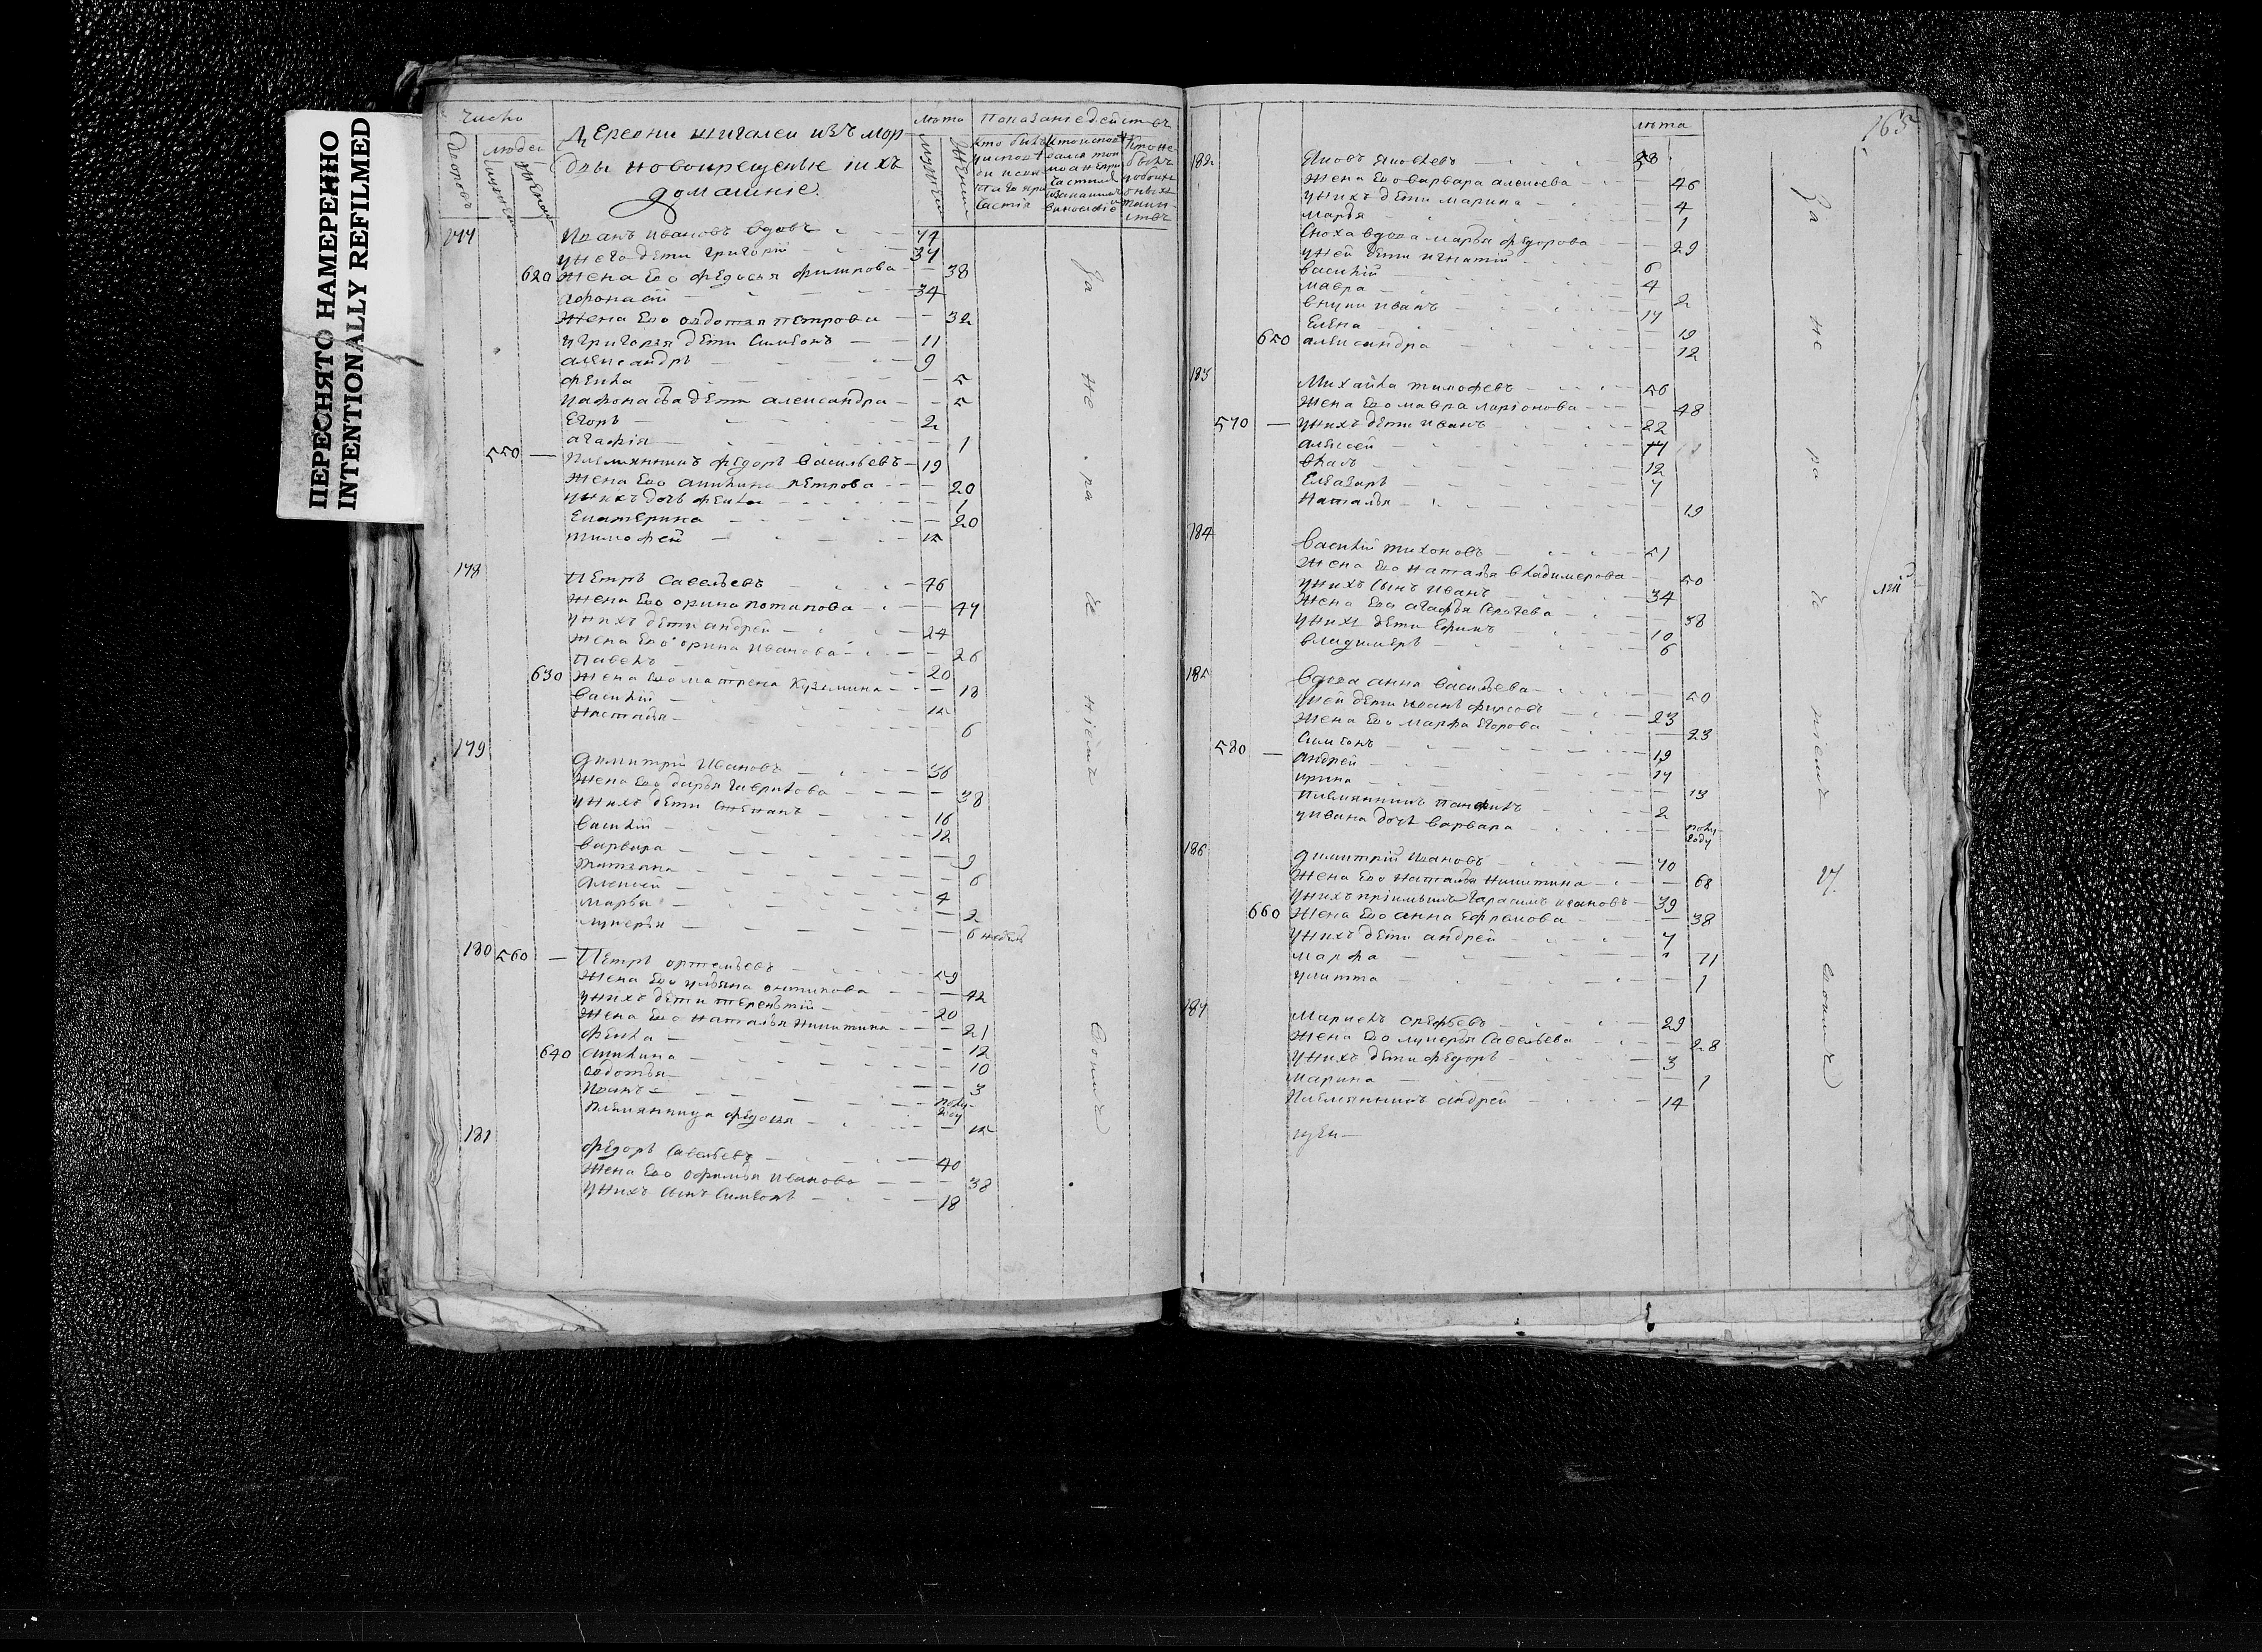 ПЕРЕСНЯТО НАМЕРЕННО
INTENTIONALLY REFILMED
Число
Дворовъ
людей
Деревни шигалеи изъ мор
двы новокрещеные ихъ
домашние
лета
Показание действъ
177 Иванъ Ивановъ вдовъ 74
у него дети Григорий 37
620 Жена Его Федосья Филипова 38
Афонасий 34
Жена Его овдотья Петрова 32
у Григорья дети Симеонъ 11
александръ 9
Фекла 5
у афонасья дети александра 5
Егоръ 2
агафия 1
550 Племянникъ Федоръ Васильевъ 19
Жена Его акилина Петрова 20
у нихъ дочь Фекла 1
Екатерина 20
тимофей 15
178 Петръ Савельевъ 46
Жена Его орина потапова 47
у нихъ дети андрей 24
Жена Его орина Иванова 26
Павелъ 20
630 Жена Его матрена Кузмина 18
Василий 15
Настасья 6
179 Димитрий Ивановъ 36
Жена Его дарья Гаврилова 38
у нихъ дети Степанъ 16
Василий 12
Варвара 9
Татьяна 6
Алексей 4
Марья 2
лукерья 6 недель
180 560 Петръ ортемьевъ 59
Жена Его ульяна онтипова 42
у нихъ дети терентий 20
Жена Его Наталья Никитина 21
Фекла 12
640 акилина 10
овдотья 3
Иванъ полу-
году
Племянница Федосья 15
181 Федоръ Савельевъ 40
Жена Его офимья Иванова 38
у нихъ сынъ Симеонъ 18
За не ра че ниемъ Своимъ
165
лета
182 Яковъ Яковлевъ 53
Жена Его Варвара алексеева 46
у нихъ дети марина 4
марья 1
Сноха вдова марья Федорова 29
у ней дети игнатий 6
Василий 4
мавра 2
внуки иванъ 17
Елена 19
650 александра 12
183 Михайла тимофеевъ 56
Жена Его мавра ларионова 48
570 у нихъ дети иванъ 22
алексей 17
Власъ 12
Елеазаръ 7
Наталья 19
184 Василий тихоновъ 51
Жена Его Наталья Владимерова 50
у нихъ сынъ Иванъ 34
Жена Его агафья Сергеева 38
у нихъ дети Ефимъ 10
Владимеръ 6
185 Вдова анна Васильева 50
у ней дети Иванъ Фирсовъ 23
Жена Его марфа Егорова 23
Симеонъ 19
580 андрей 17
ирина 13
Племянникъ Панфилъ 2
у ивана дочь Варвара полу-
году
186 Димитрий Ивановъ 70
Жена Его Наталья Никитина 68
у нихъ приимышъ Гарасимъ ивановъ 39
660 Жена Его анна Ефремова 38
у нихъ дети андрей 7
марфа 11
улитта 1
187 Маркелъ Орефьевъ 29
Жена Его лукерья Савельева 28
у нихъ дети Федоръ 3
Марина 1
Племянникъ андрей 14
За не ра че ниемъ Своимъ